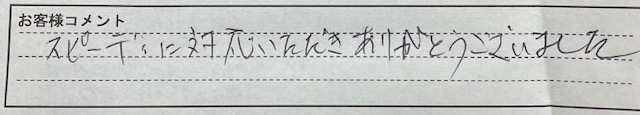 お客様コメント
スピーディに対応いただきありがとうございました